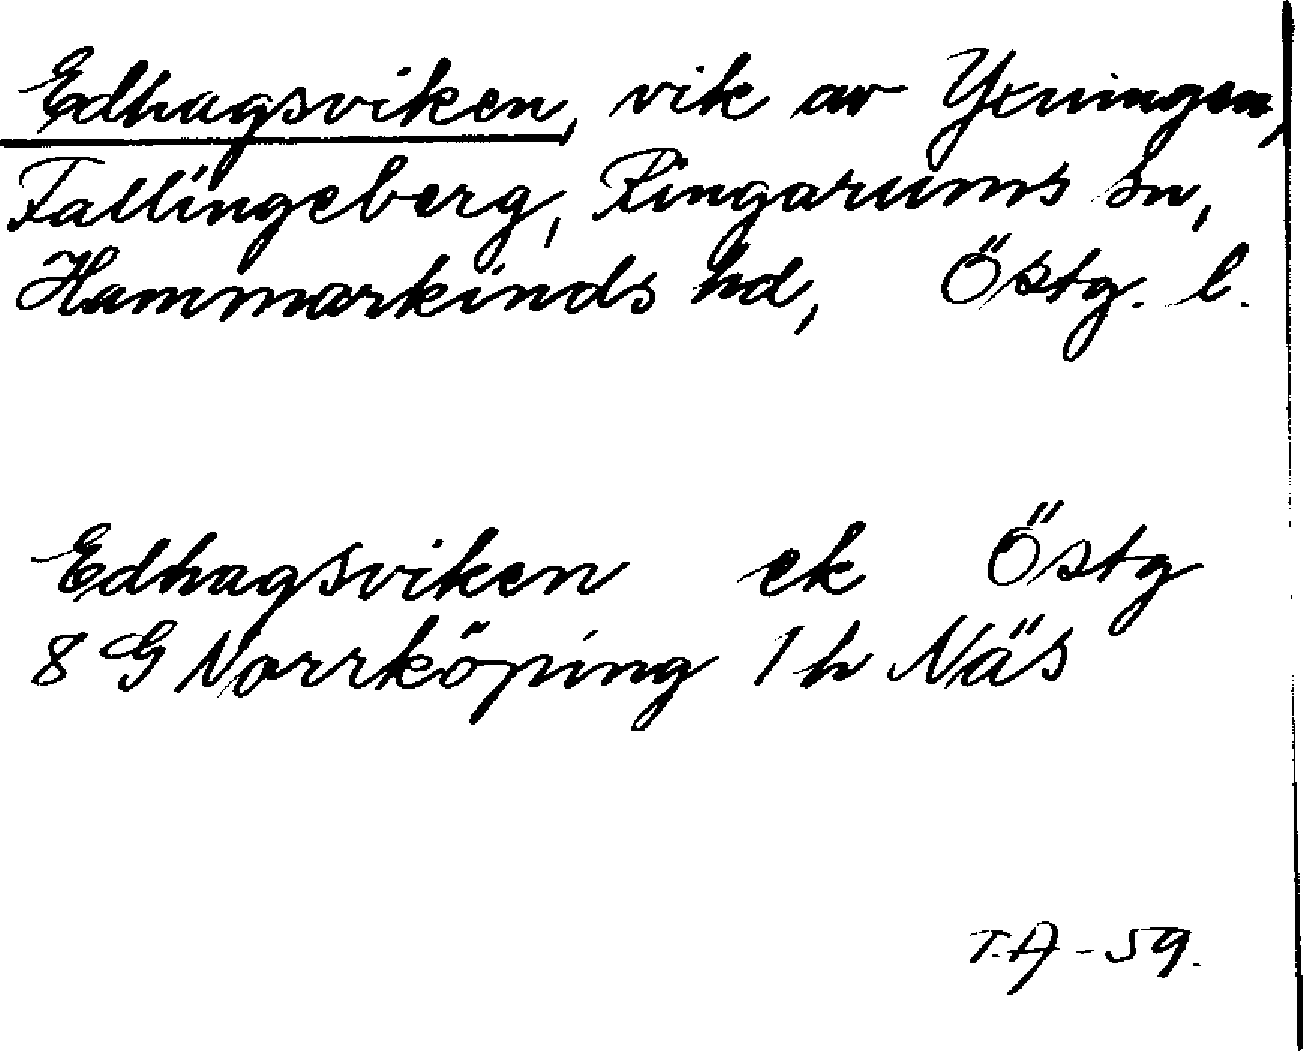 Edhagsviken, vik av Yxningen,
Fallingeberg, Ringarums sn,
Hammarkinds hd, Östg. l.
Edhagsviken ek Östg
8 G Norrköping 1 h Näs
T.A - 59.